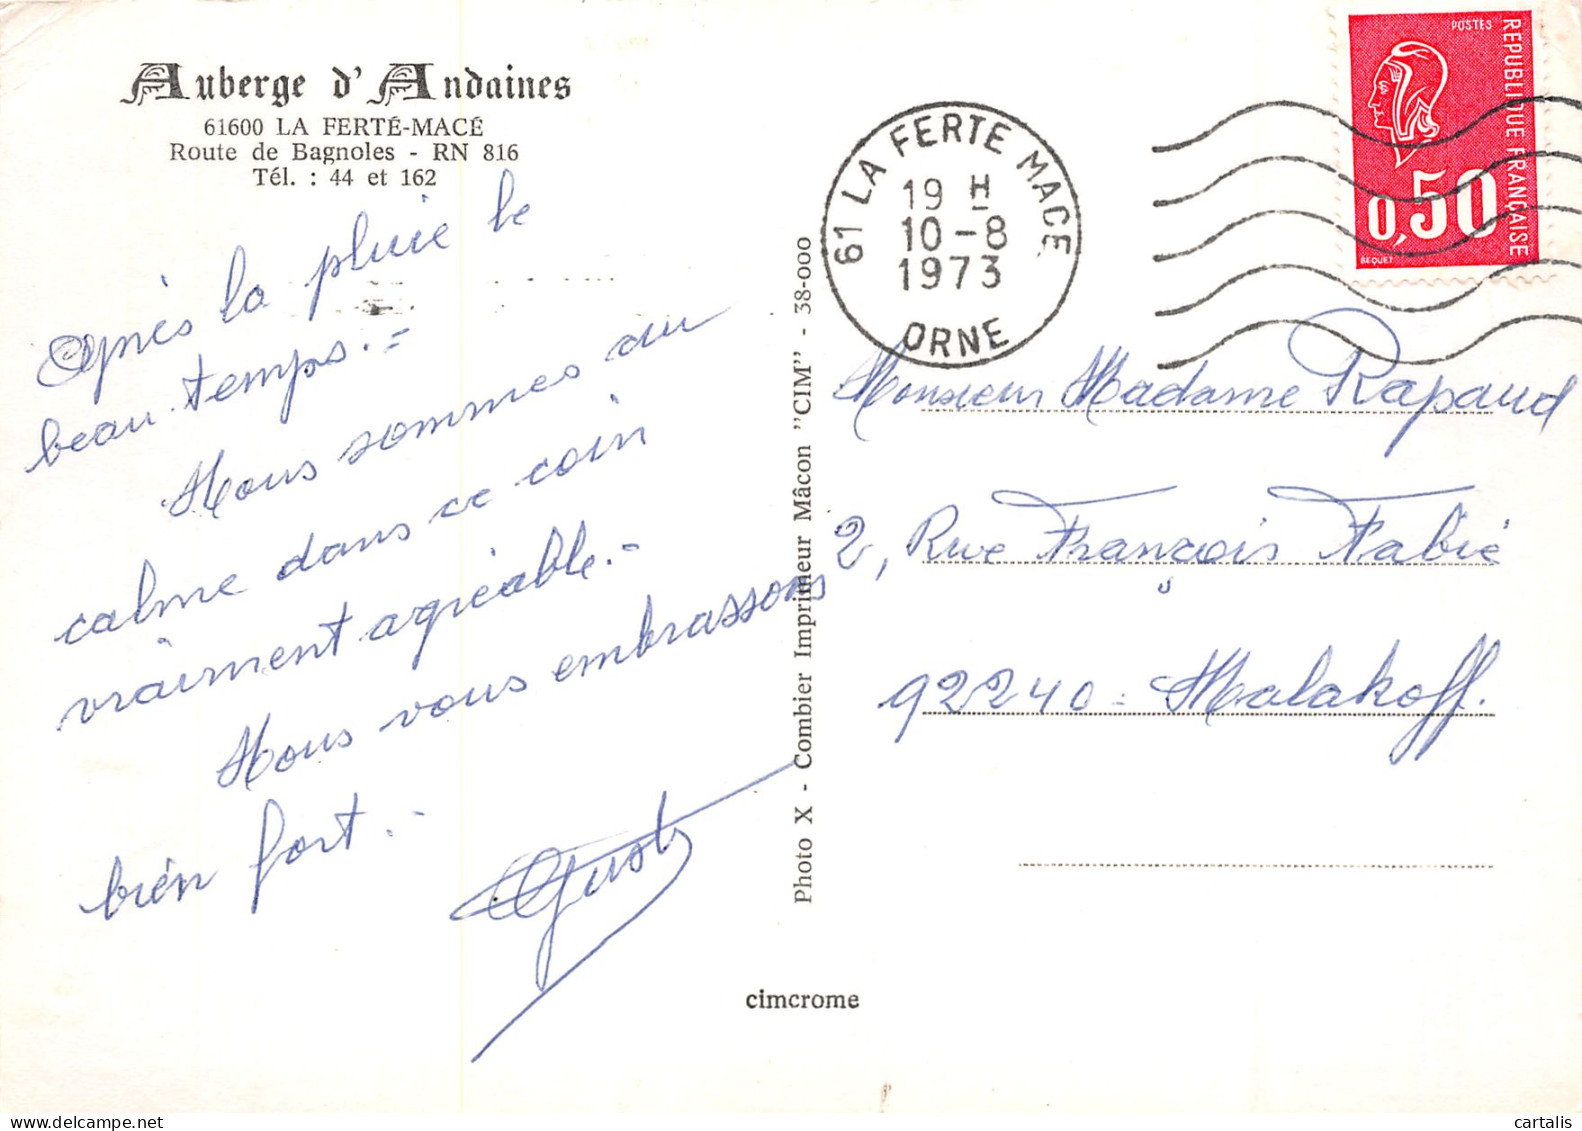 Auberge d'Andaines
61600 LA FERTÉ-MACÉ
Route de Bagnoles - RN 816
Tél. : 44 et 162
Après la pluie le
beau temps.=
Nous sommes au
calme dans ce coin
vraiment agréable.-
Nous vous embrassons
bien fort.-
Photo X - Combier Imprimeur Mâcon "CIM" - 38-000
cimcrome
61 LA FERTE MACE
19 H
10-8
1973
ORNE
POSTES
REPUBLIQUE FRANÇAISE
0,50
BEQUET
Monsieur Madame Rapaud
2, Rue François Fabié
92240 - Malakoff.
cartalis